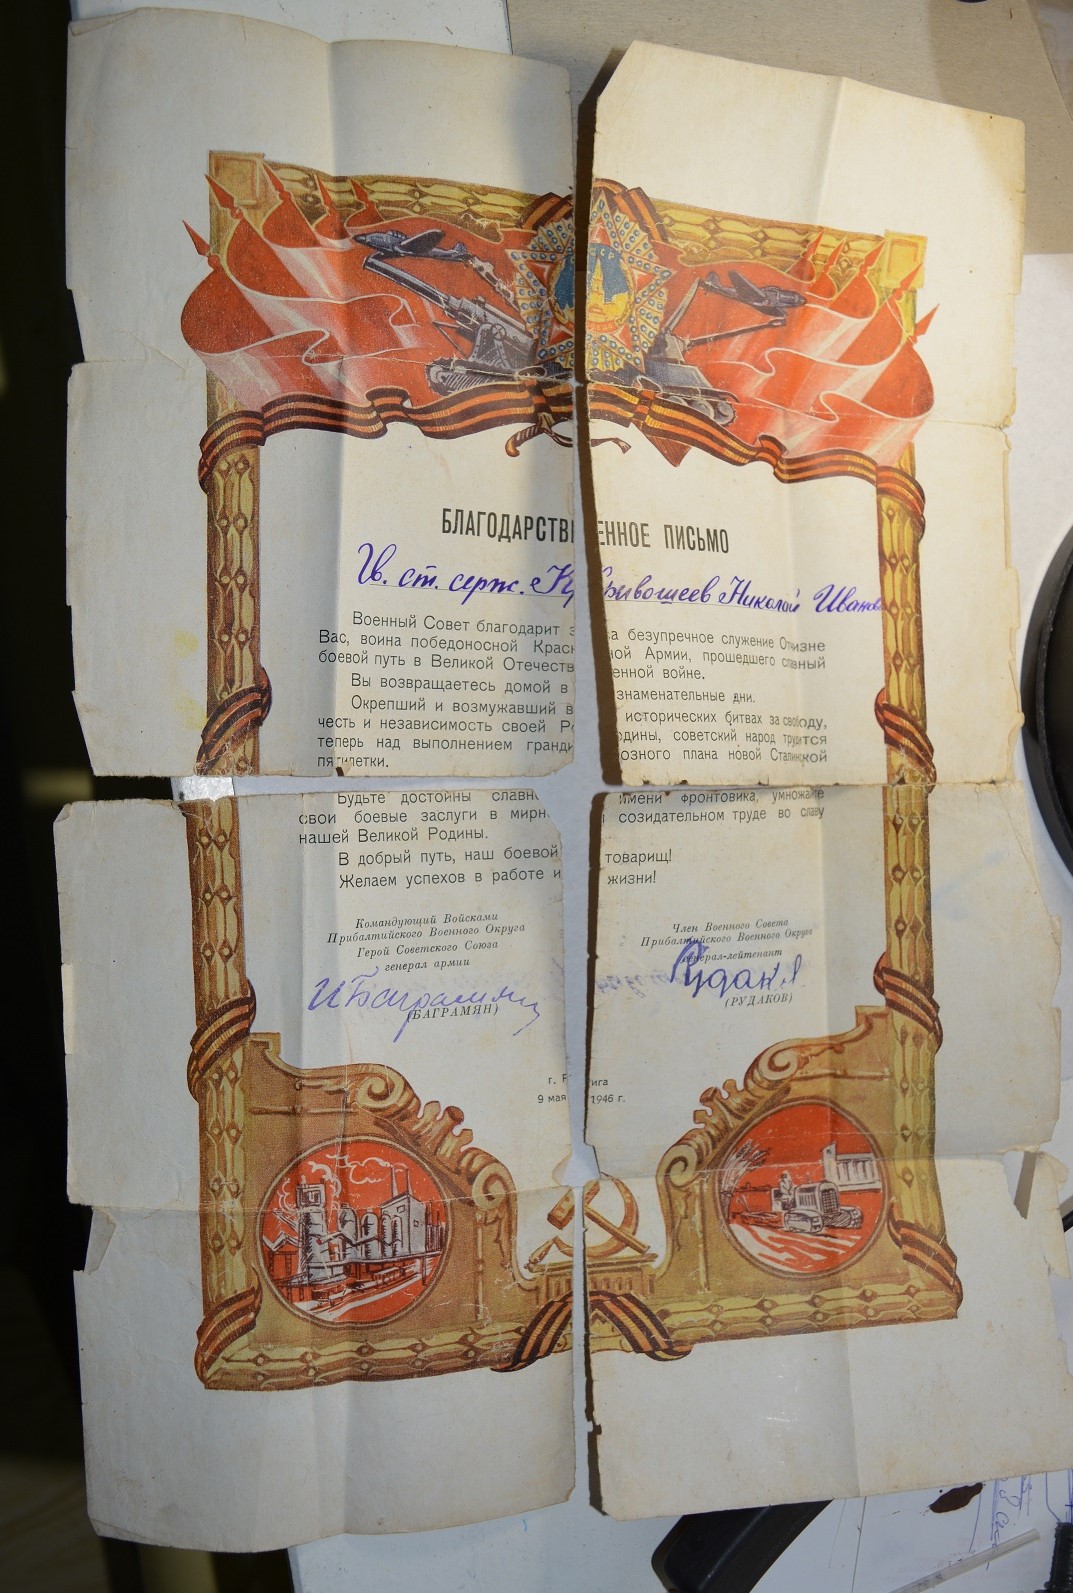 БЛАГОДАРСТВЕННОЕ ПИСЬМО
Гв. ст. серж. Кривошеев Николай Иванов
Военный Совет благодарит за безупречное служение Отчизне
Вас, воина победоносной Красной Армии, прошедшего славный
боевой путь в Великой Отечественной войне.
Вы возвращаетесь домой в знаменательные дни.
Окрепший и возмужавший в исторических битвах за свободу,
честь и независимость своей Родины, советский народ трудится
теперь над выполнением грандиозного плана новой Сталинской
пятилетки.
Будьте достойны славного имени фронтовика, умножайте
свои боевые заслуги в мирном созидательном труде во славу
нашей Великой Родины.
В добрый путь, наш боевой товарищ!
Желаем успехов в работе и жизни!
Командующий Войсками
Прибалтийского Военного Округа
Герой Советского Союза
генерал армии
И Баграмян
(БАГРАМЯН)
Член Военного Совета
Прибалтийского Военного Округа
генерал-лейтенант
Рудаков
(РУДАКОВ)
г. Рига
9 мая 1946 г.